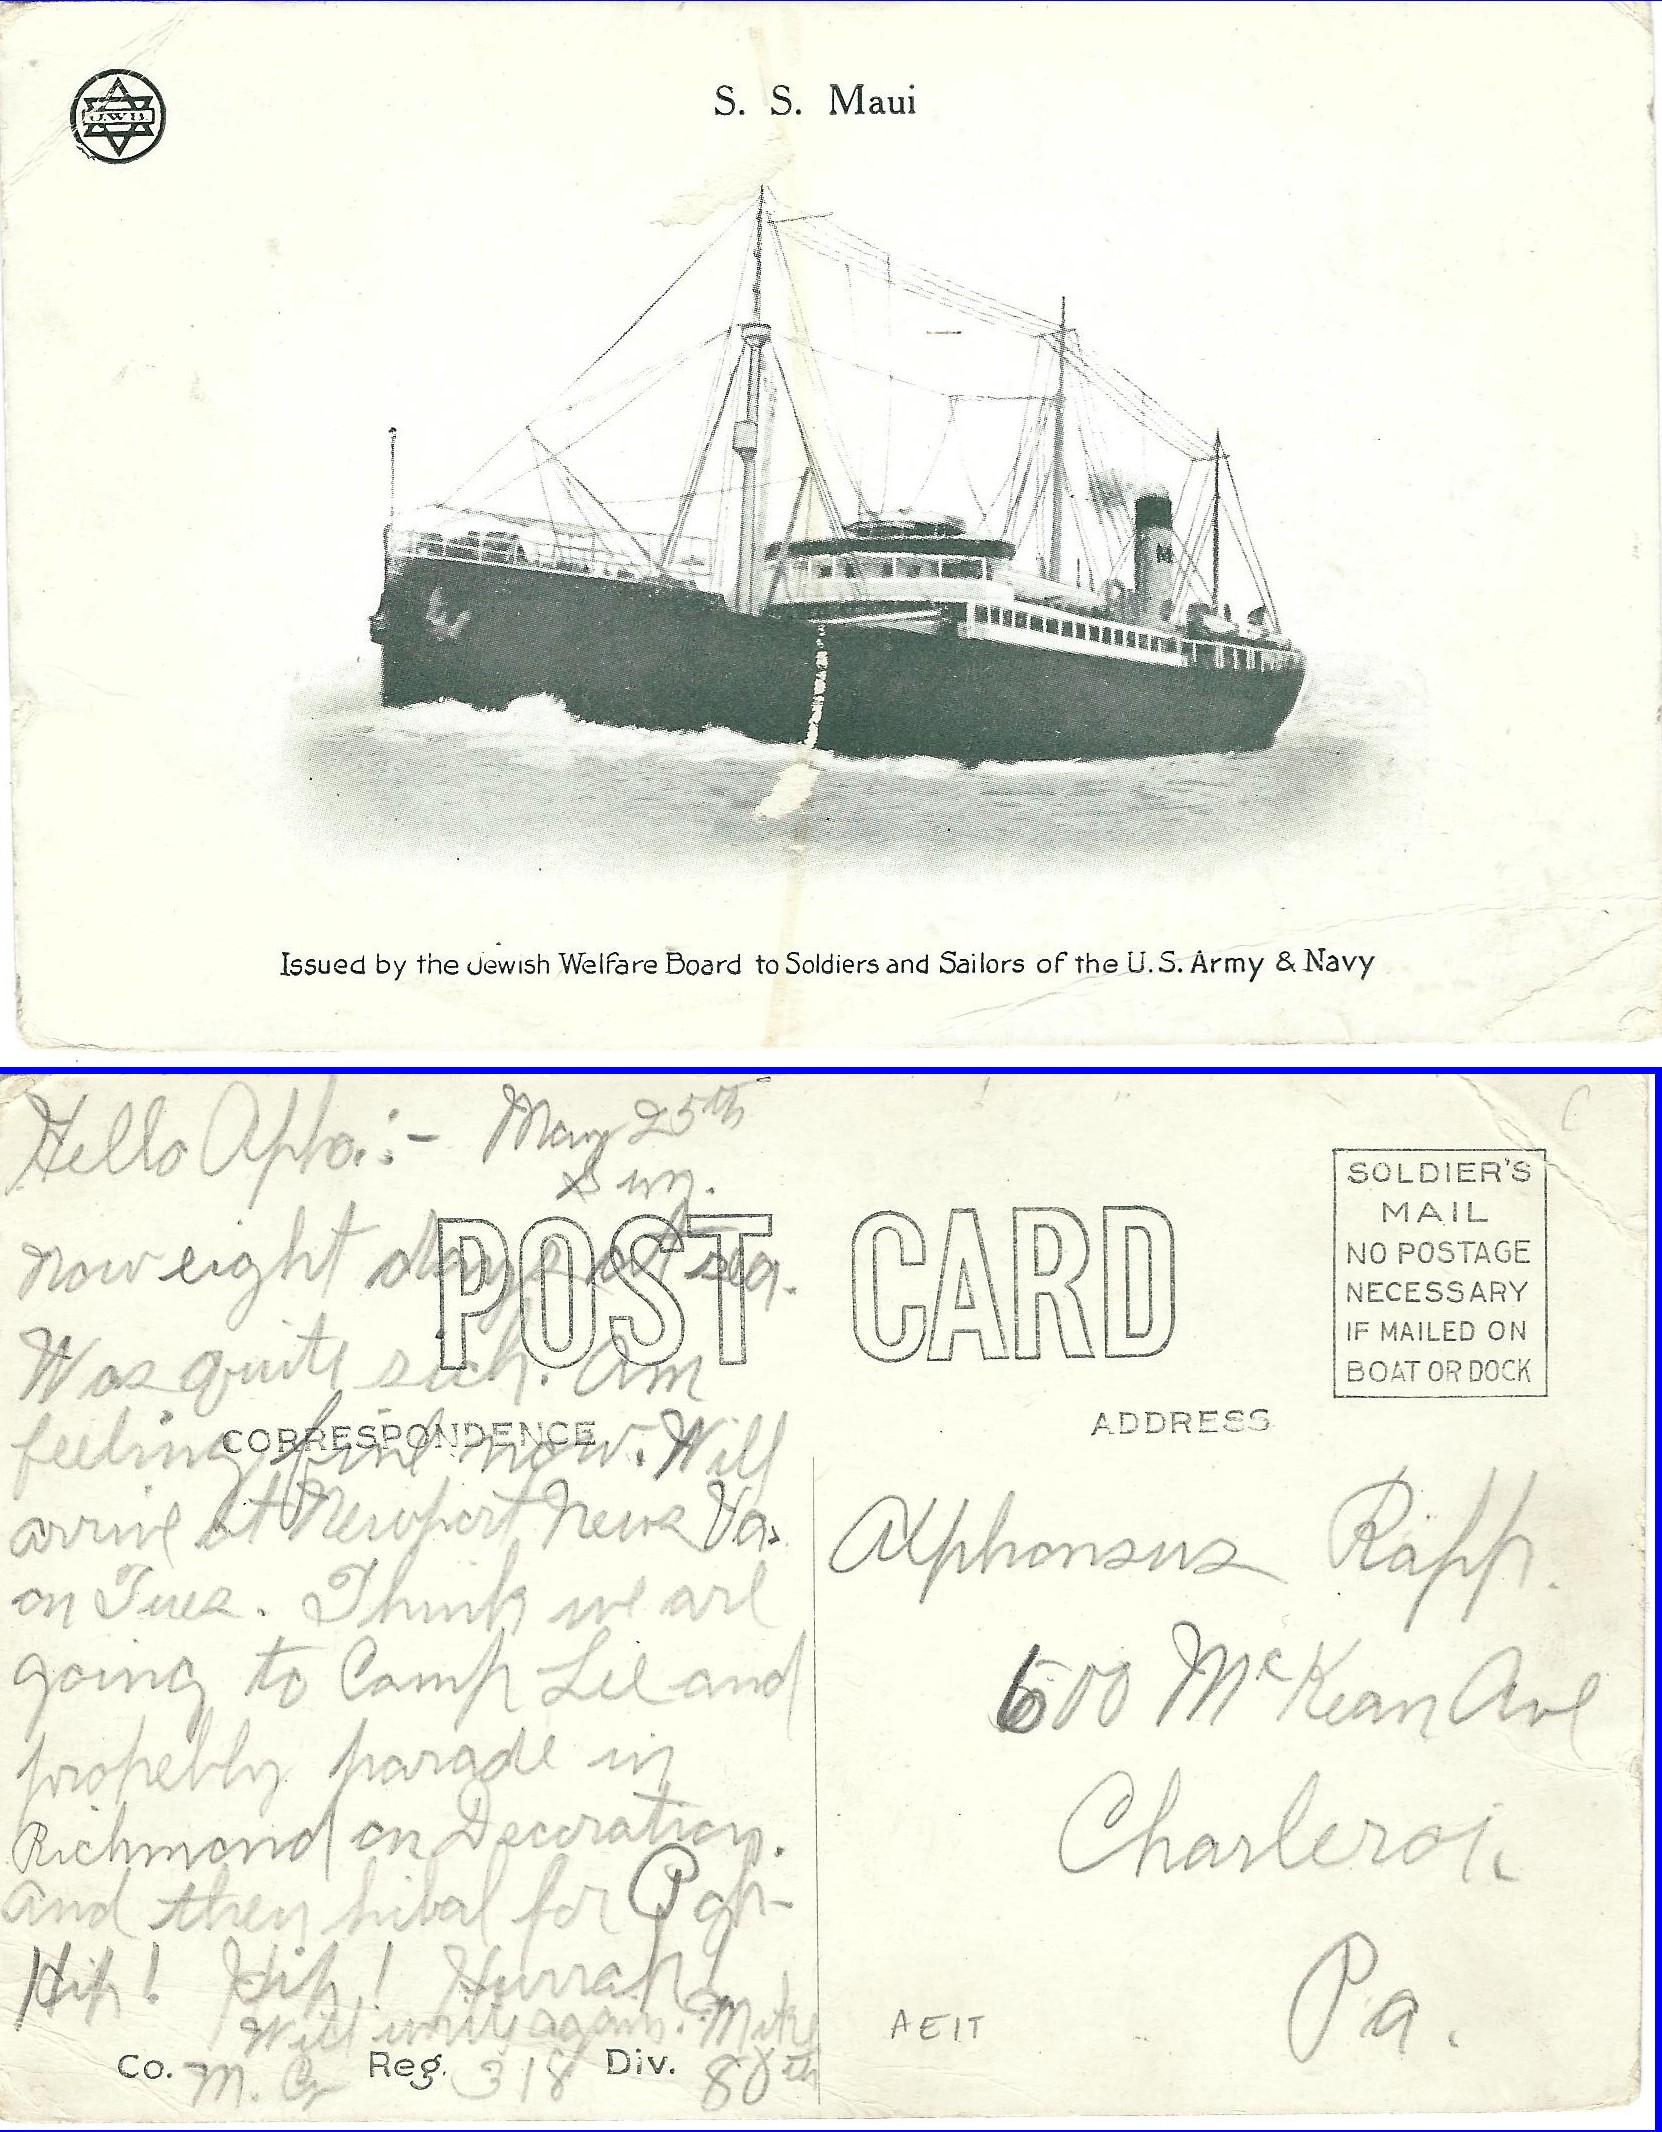 J.W.B.
S. S. Maui
M
Issued by the Jewish Welfare Board to Soldiers and Sailors of the U.S. Army & Navy
Hello Apho.:- May 25th
Sun.
Now eight days at sea.
Was quite sick. Am
feeling fine now. Will
arrive at Newport News Va.
on Tues. Think we are
going to Camp Lee and
propebly parade in
Richmond on Decoration.
and then hibal for Pgh-
Hip! Hip! Hurrah!
Will write again. Mike
Co. M. G Reg. 318 Div. 80th
POST CARD
CORRESPONDENCE
ADDRESS
SOLDIER'S
MAIL
NO POSTAGE
NECESSARY
IF MAILED ON
BOAT OR DOCK
Alphonsus Rapp.
600 McKean Ave
Charleroi.
Pa.
AEIT